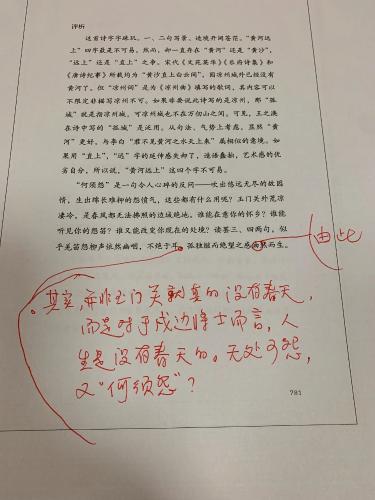 评析
这首诗字字珠玑。一、二句写景、边境开阔苍茫。“黄河远
上”四字最是不可易。然而，却一直存在“黄河”还是“黄沙”，
“远上”还是“直上”之争。宋代《文苑英华》《乐府诗集》和
《唐诗纪事》所载均为“黄沙直上白云间”，因凉州城外已经没有
黄河了。但“凉州词”是为《凉州曲》填写的歌词，其内容可以
不限定非描写凉州不可。如果非要说此诗写的是凉州，那“孤
城”就是指凉州城，可凉州城也不在万仞山之间。可见，王之涣
在诗中写的“孤城”是泛用。从句法、气势上考虑，显然“黄
河”更好，与李白“君不见黄河之水天上来”属相似的意境。如
果用“直上”，“远”字的延伸感失却了，造语蠢拙，艺术感的优
劣自分。所以说，“黄河远上”这四个字不可易。
“何须怨”是一句令人心碎的反问——吹出悠远无尽的故园
情，生出绵长难抑的怨情气，这些都有什么用呢？玉门关外荒凉
凄冷，是春风都无法拂照的边境绝地。谁能在意你的怀乡？谁能
听见你的怨笛？谁又能改变你现在的处境？读罢三、四两句，似
乎羌笛怨柳声依然幽咽，不绝于耳。孤独继而绝望之感油然而生。
由此
其实，并非玉门关就真的没有春天，
而是对于戍边将士而言，人
生是没有春天的。无处可怨，
又“何须怨”？
781